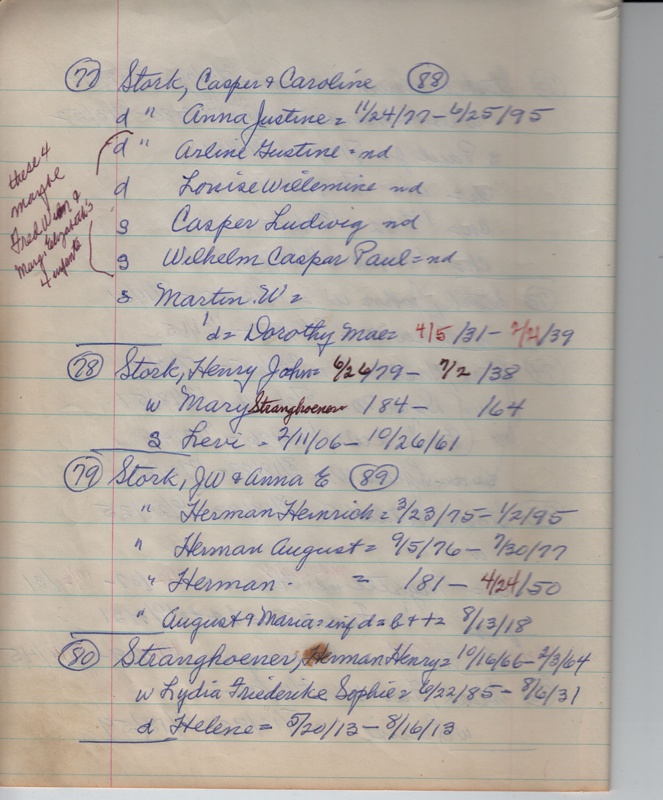 77 Stork, Casper & Caroline 88
d " Anna Justine = 11/24/77 - 6/25/95
d " Arline Justine = nd
d Louise Willemine nd
s Casper Ludwig nd
s Wilhelm Caspar Paul = nd
these 4
maybe
Fred Wm &
Marg. Elizabeth's
4 infants
s Martin W =
1 d = Dorothy Mae = 4/5/31 - 7/21/39
78 Stork, Henry John = 6/26/79 - 7/2/38
w Mary Stranghoener 184 - 164
S Levi - 2/11/06 - 10/26/61
79 Stork, JW & Anna E 89
" Herman Heinrich = 3/23/75 - 1/2/95
" Herman August = 9/5/76 - 7/30/77
" Herman . = 181 - 4/24/50
" August & Maria = inf d = b + t = 8/13/18
80 Stranghoener, Herman Henry = 10/16/66 - 2/3/64
w Lydia Friederike Sophie = 6/22/85 - 8/6/31
d Helene = 5/20/13 - 8/16/13